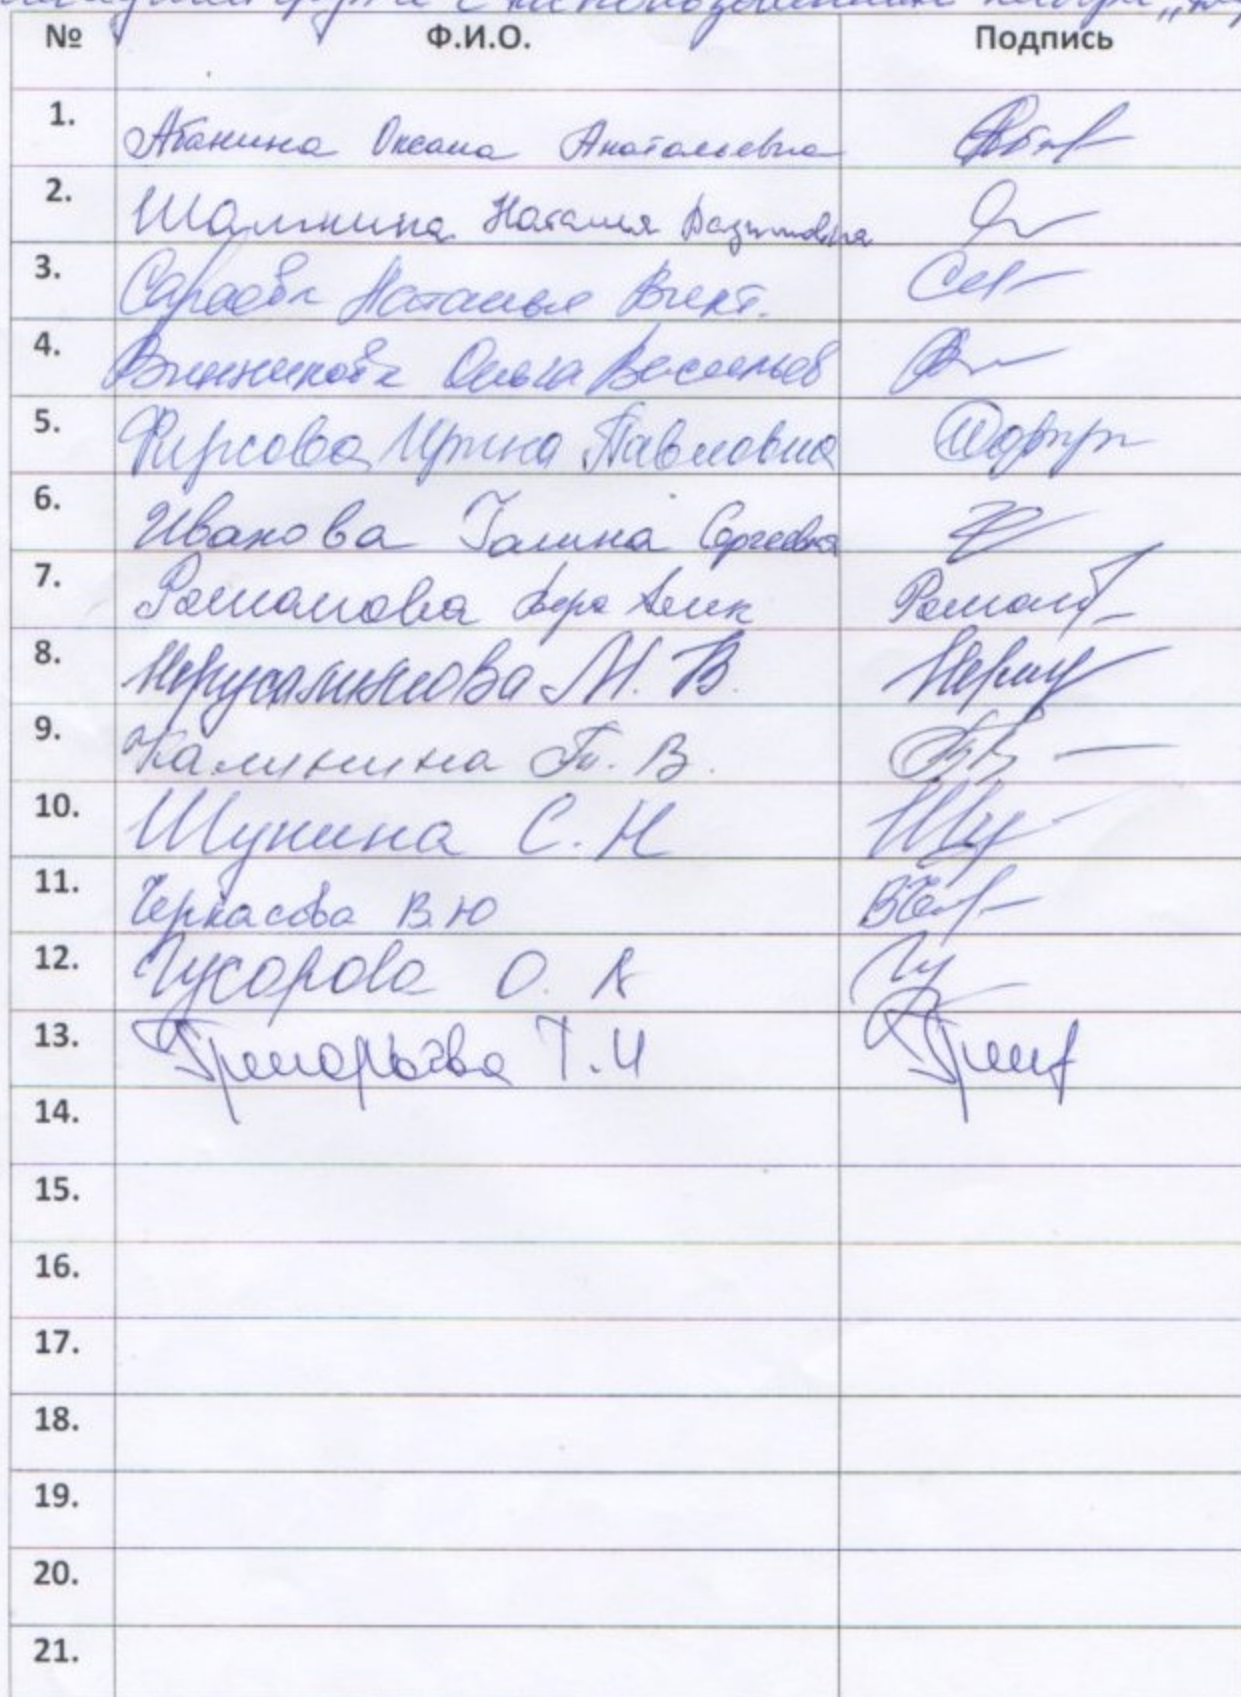 с использованием
№ Ф.И.О. Подпись
1. Абанина Оксана Анатольевна
2. Шалинина Наталия
3. Сараева Наталья Викт.
4. Винникова Ольга Васильев
5. Фирсова Ирина Павловна
6. Иванова Галина Сергеевна
7. Романова Вера Алек Романов
8. Иерусалимова М. В.
9. Калинина Т. В.
10. Шунина С. Н
11. Черкасова В.Ю
12. Гусарова О. А
13. Григорьева Т. И
14.
15.
16.
17.
18.
19.
20.
21.